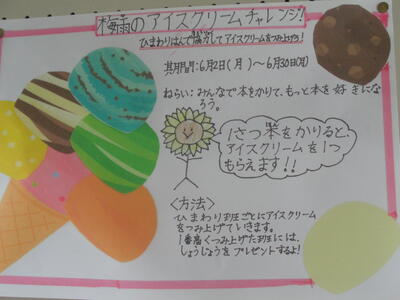 梅雨のアイスクリームチャレンジ!
ひまわりはんで協力してアイスクリームをつみ上げろ!
其月間:6月2日(月)〜6月30日(月)
ねらい:みんなで本をかりて、もっと本を好きになろう。
1さつ本をかりると、
アイスクリームを1つ
もらえます!!
〈方法〉
ひまわり班ごとにアイスクリーム
をつみ上げていきます。
1番高くつみ上げた班には、
しょうじょうをプレゼントするよ!